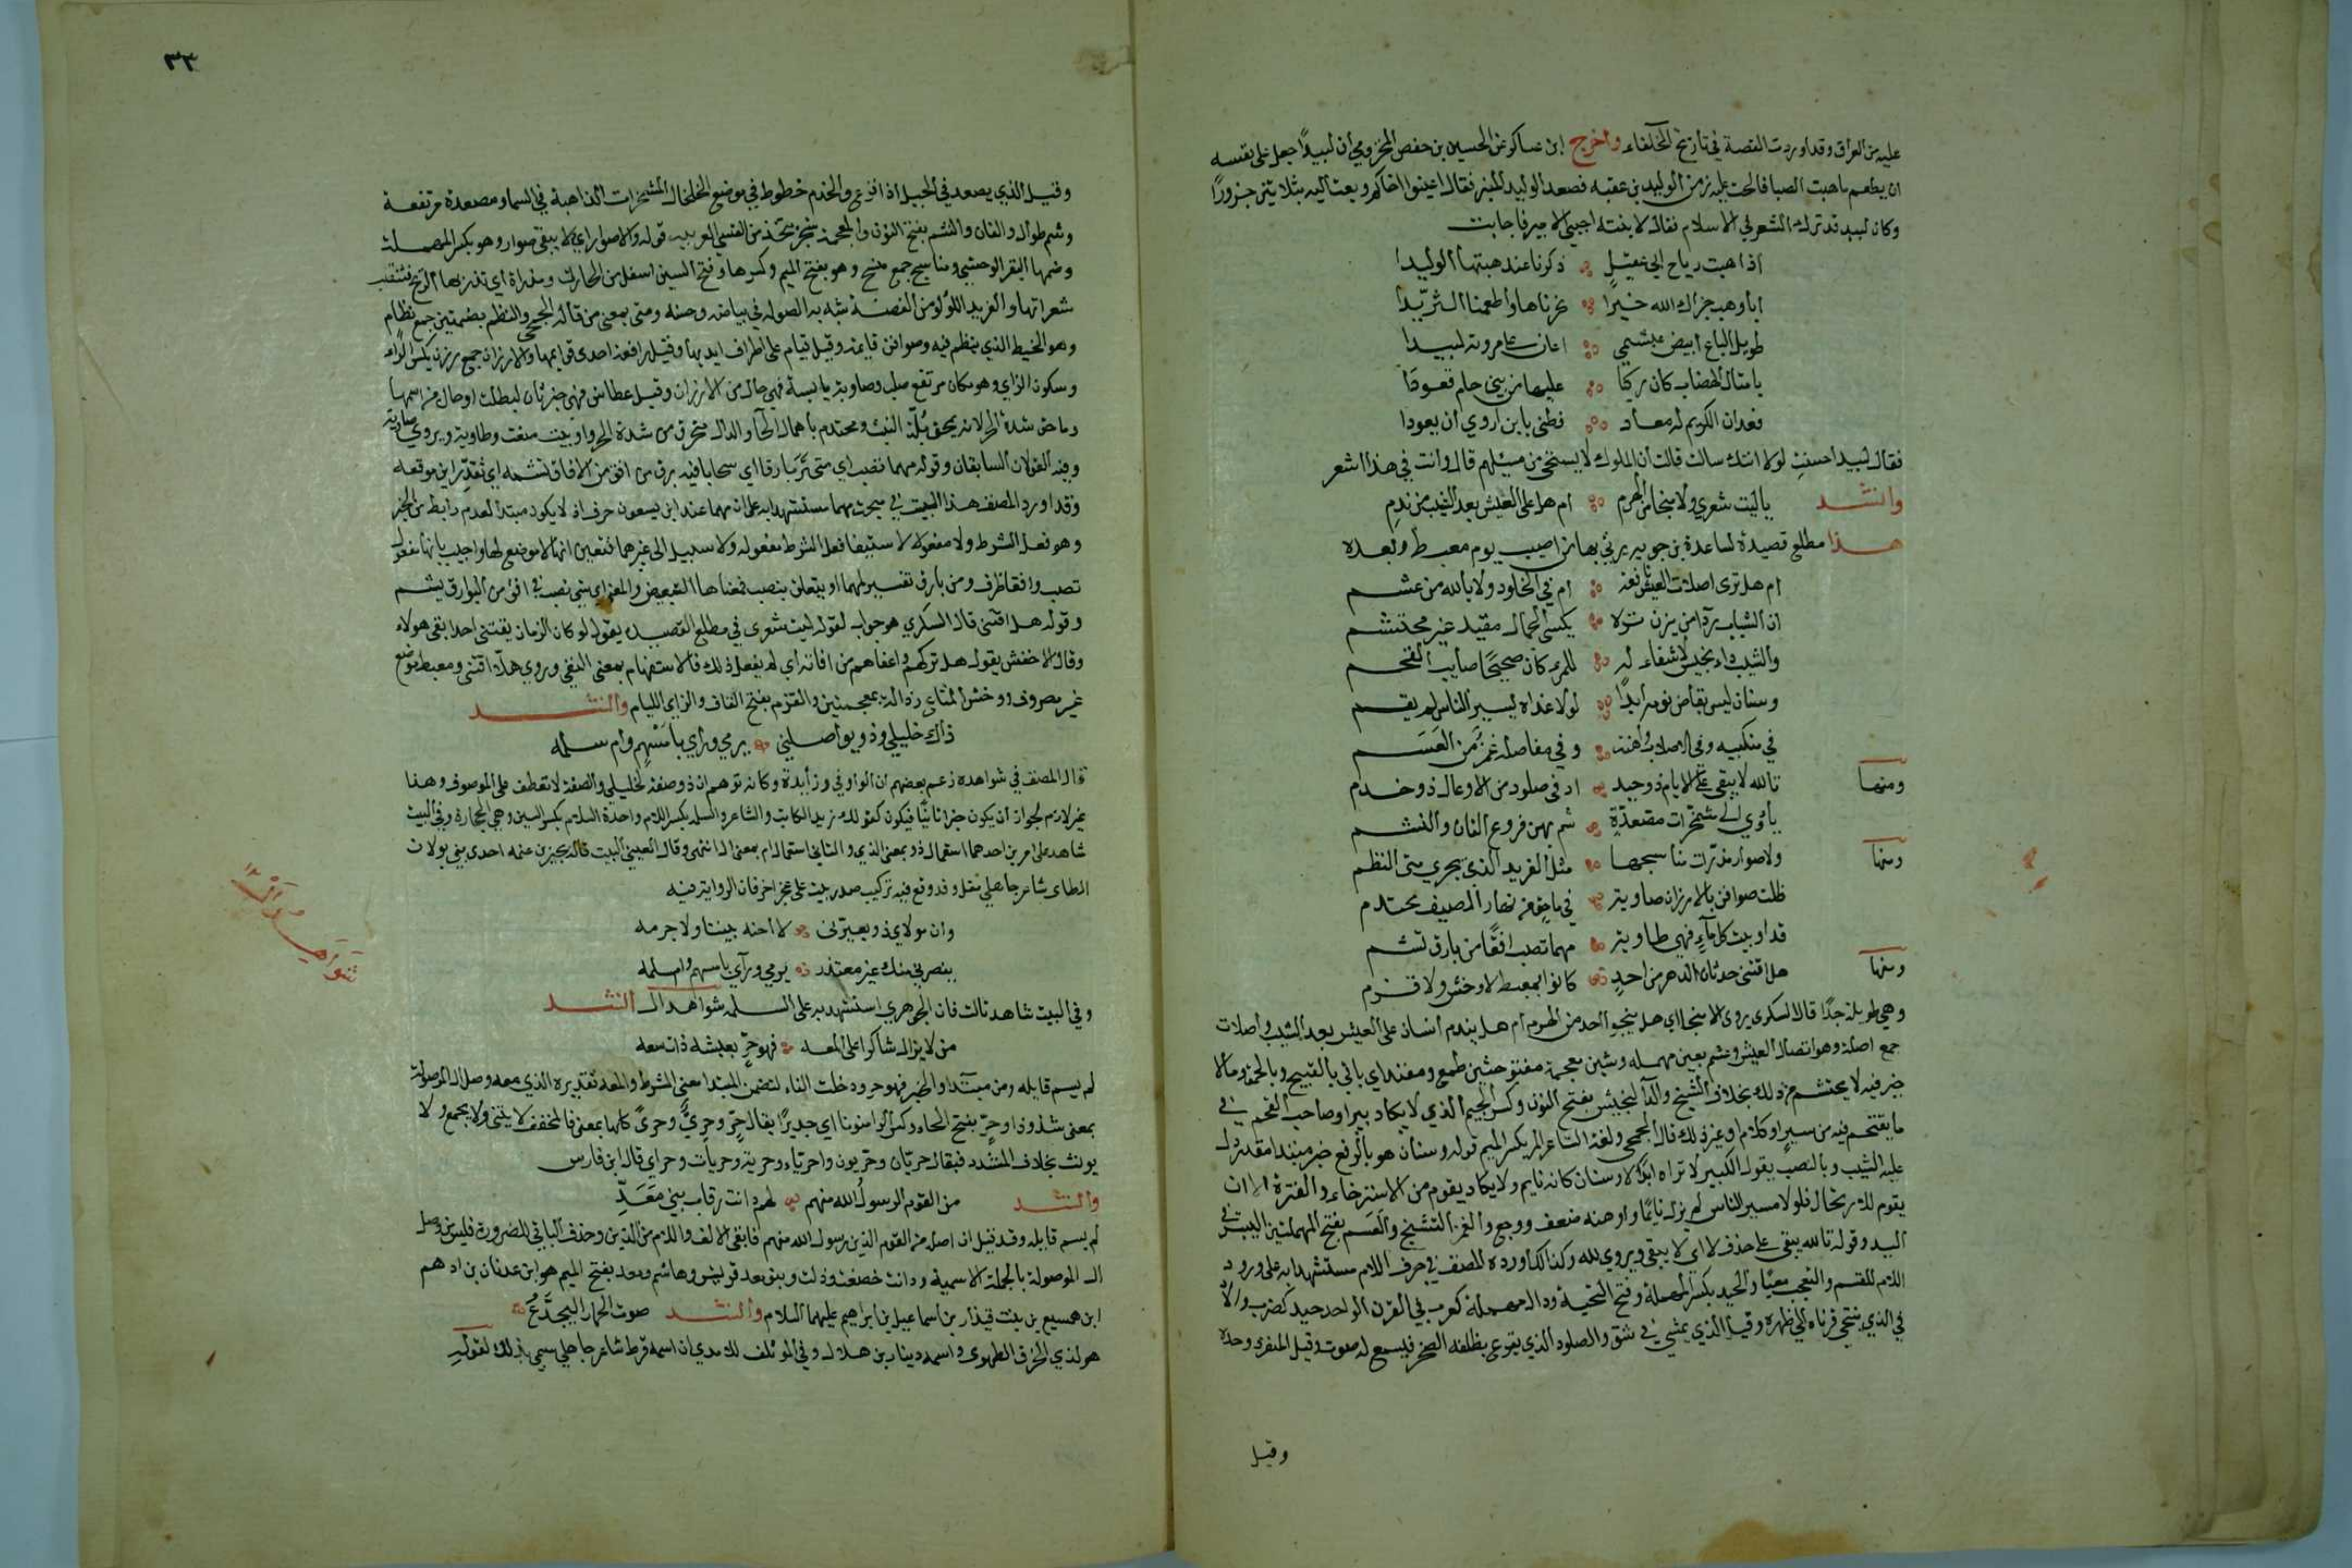 عليه من العراق وقد اوردت القصة في تاريخ الخلفاء واخرج ابن عساكر عن الحسين بن حفص المخزومي أن لبيدًا جعل على نفسه
ان يطعم ما هبت الصبا فالحت عليه زمن الوليد بن عقبه فصعد الوليد المنبر فقال اعينوا اخاكم وبعث اليه بثلاثين جزورًا
وكان لبيد قد ترك الشعر في الاسلام فقال لابنته اجيبي الامير فاجابت
اذا هبت رياح ابي عقيل ذكرنا عند هبتها الوليدا
ابا وهب جزاك الله خيرًا نحرناها واطعمنا الثريدا
طويل الباع ابيض عبشمي اعان على مروته لبيدا
بامثال الهضاب كان ركبًا عليها من بني حام قعودًا
فعد ان الكريم له معاد وظني بابن اروي أن يعودا
فقال لبيد احسنت لولا انك سالت قالت أن الملوك لا يستحى من مسئلتهم قال وانت في هذا اشعر
وانشد يا ليت شعري ولا منجا من الهرم ام هل على العيش بعد الشيب من ندم
هذا مطلع قصيدة لساعدة بن جوية يرثي بها من اصيب يوم معيط وبعده
ام هل ترى اصلات العيش نافعة ام في الخلود ولا بالله من عشم
ان الشباب ردآ من يزن تره يكسى الجمال مفند غير محتشم
والشيب داء نجيس لا شفاء له للمرء كان صحيحًا صايب القحم
وسنان ليس بقاض نومه أبدًا لولا غداة يسير الناس لم يقم
في منكبيه وفي الاصلاب واهنة وفي مفاصله غمز من العسم
ومنها تالله لا يبقى على الايام ذو حيد ادفى صلود من الاوعال ذو خدم
يأوي الى مشمخرات مصعدة شم بهن فروع القان والنشم
ومنها ولا صوار مذراة مناسجها مثل الفريد الذي يجري متى النظم
ظلت صوافن بالارزان صاوية في ماحق من نهار الصيف محتدم
قد اوبيت كل ماء فهي طاوية مهما تصب افقًا من بارق تشم
ومنها هل اقتنى حدثان الدهر من احد كانوا بمعيط لا وخش ولا قزم
وهي طويلة جدًا قال السكري يروى الا منجا اي هل ينجوا احد من الهرم ام هل يندم انسان على العيش بعد الشيب واصلات
جمع اصلة وهو اتصال العيش وعشم بعين مهملة وشين معجمة مفتوحتين طمع ومفند اي ياتي بالقبيح وبالحمق وما لا
خير فيه لا يحتشم من ذلك بخلاف الشيخ والدآ النجيس بفتح النون وكسر الجيم الذي لا يكاد يبرا وصاحب القحم اي
ما يقتحم فيه من سير او كلام او غير ذلك قال الجمحي ولغة الشاعر المر بكسر الميم قوله وسنان هو بالرفع خبر مبتدا مقدر دل
عليه الشيب وبالنصب يقول الكبير لا تراه ابدًا الا وسنان كانه نايم ولا يكاد يقوم من الاسترخاء والفترة الا ان
يقوم للارتحال فلولا مسير الناس لم يزل نايمًا واوهنه ضعف ووجع والغمز التشنج والعسم بفتح المهملتين اليبس في
اليد وقوله تالله يبقى على حذف لا اي لا يبقى ويروي لله وكذا اورده المصنف في حرف اللام مستشهدا به على ورود
اللام للقسم والتعجب معًا والحيد بكسر المهملة وفتح التحتية ودال مهملة كعوب في القرن الواحد حيد كضرب والادفى
الذي ينتحي قرناه الى ظهره وقيل الذي يمشي في شق والصلود الذي يقرع بظلفه الصخر فيسمع له صوت وقيل المنفرد وحده
وقيل
٣٣
وقيل الذي يصعد في الجبل اذا افزع والخدم خطوط في موضع الخلخال المشمخرات الذاهبة في السما ومصعدة مرتفعة
وشم طوال والقان والنشم بفتح النون والمعجمة شجر يتخذ منه القسي العربيه قوله ولا صوار اي لا يبقى صوار وهو بكسر المهملة
وضمها البقر الوحشي ومناسج جمع منسج وهو بفتح الميم وكسرها وفتح السين اسفل من الحارك ومذراة اي تذريها الريح فتنقلب
شعراتها والفريد اللؤلؤ من الفضة شبه به الصوار في بياضه وحسنه ومتى بمعنى من قاله الجمحي والنظم بضمتين جمع نظام
وهو الخيط الذي ينظم فيه وصوافن قايمة وقيل قيام على اطراف ايديها وقيل رافعة احدى قوايمها والارزان جمع رزن بكسر الراء
وسكون الزاي وهو مكان مرتفع صلب وصاوية يابسة فهي حال من الارزان وقيل عطاش فهي خبر ثان لظلت او حال من اسمها
وماحق شدة الحر لانه يحق بُلّة النبت ومحتدم باهمال الحآ والدال محرق من شدة الحر واوبيت منعت وطاوية ويروي صاوية
وفيه القولان السابقان وقوله مهما تصب اي متى تَرَ بارقا اي سحابا فيه برق من افق من الافاق تشمه اي تُقدِّر اين موقعه
وقد اورد المصنف هذا البيت في مبحث مهما مستشهدا به على ان مهما عند ابن يسعون حرف اذ لا يكون مبتدا لعدم رابط من الخبر
وهو فعل الشرط ولا مفعوله لاستيفا فعل الشرط مفعوله ولا سبيل الى غيرهما فتعين انها لا موضع لها واجيب بانها مفعول
تصب وافقا ظرف ومن بارق تفسير لمهما او يتعلق بتصب فمعناها التبعيض والمعنى اي شي تصب في افق من البوارق تشم
وقوله هل اقتنى قال السكري هو جواب لقوله ليت شعري في مطلع القصيدة يقول لو كان الزمان يقتنى احدا بقى هولاء
وقال الاخفش يقول هل تركهم واعفاهم من افاته اي لم يفعل ذلك فالاستفهام بمعنى النفي وروي هلا اقتنى ومعيط موضع
غير مصروف ووخش المتاع رذاله بمعجمتين والقزم بفتح القاف والزاي الليام وانشد
ذاك خليلي وذو يواصلني يرمي ورآي بامْسَهِمِ وامْ سلمه
قال المصنف في شواهده زعم بعضهم ان الواو في وذ زايدة وكانه توهم ان ذو صفة لخليلي والصفة لا تعطف على الموصوف وهذا
غير لازم لجواز أن يكون خبرا ثانيًا فيكون كقولك زيد الكاتب والشاعر والسلمه بكسر اللام واحدة السلام بكسر السين وهي الحجارة وفي البيت
شاهد على امرين احدهما استعمال ذو بمعنى الذي والثاني استعمال ام بمعنى ال انتهى وقال العيني البيت قاله بجير بن عنمه احدى بني بولان
الطاي شاعر جاهلي مقل وقد وقع فيه تركيب صدر بيت على عجز اخر فان الرواية فيه
وان مولاي ذو يعيرني لا احنة بيننا ولا جرمه
ينصرني منك غير معتذر يرمي ورآي بامسهم وامسلمه
وفي البيت شاهد ثالث فان الجوهري استشهد به على السلمه شواهد ال انشد
من لا يزال شاكرا على المعه فهو حرٍ بعيشة ذات سعه
لم يسم قايله ومن مبتدا والخبر فهو حر ودخلت الفاء لتضمن المبتدا معنى الشرط والمعه تقديره الذي معه وصل ال الموصولة
بمعنى شذوذا وحرٍ بفتح الحاء وكسر الرا منونا اي جديرًا يقال حرٍ وحريٌّ وحرىً كلها بمعنى فالمخفف لا يثنى ولا يجمع ولا
يونث بخلاف المشدد فيقال حريان وحريون واحرياء وحرية وحريات وحراي قال ابن فارس
وانشد من القوم الرسولُ الله منهم لهم دانت رقاب بني مَعَدّ
لم يسم قايله وقد قيل ان اصله من القوم الذين رسول الله منهم فابقى الالف واللام من الذين وحذف الباقي للضرورة فليس من وصل
ال الموصولة بالجملة الاسمية ودانت خضعت وذلت وبنو معد قريش وهاشم ومعد بفتح الميم هو ابن عدنان بن ادهم
ابن هميسع بن بنت قيذار بن اسماعيل بن ابراهيم عليهما السلام وانشد صوت الحمار اليجدَّعُ
هو لذي الخرق الطهوي واسمه دينار بن هلال وفي المؤتلف للامدي ان اسمه قرط شاعر جاهلي سمي بذلك لقوله